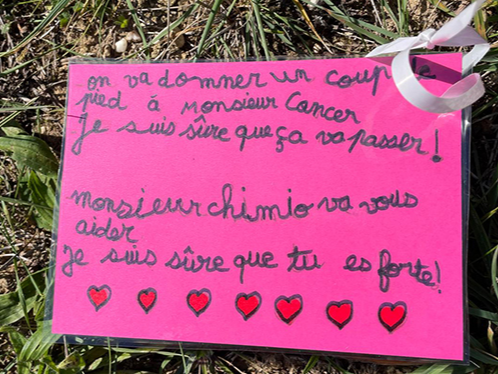 on va domner un coup de
pied à Monsieur Cancer
Je suis sûre que ça va passer !
monsieur chimio va vous
aider
Je suis sûre que tu es forte!